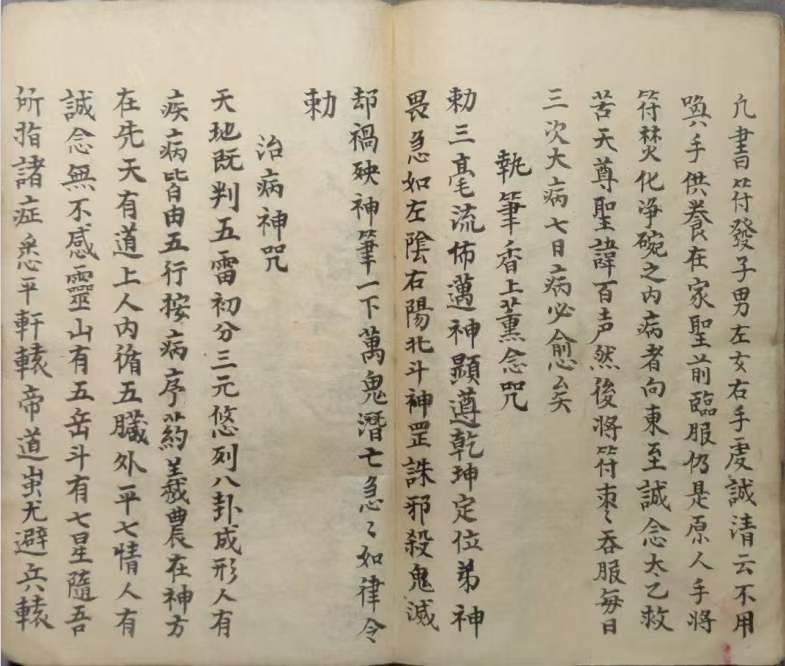 凡書符發子男左女右手虔誠清云不用
喚手供養在家聖前臨服仍是原人手將
符焚化净碗之内病者向東至誠念太乙救
苦天尊聖諱百声然後將符枣〻吞服每日
三次大病七日病必愈矣
執筆香上薰念咒
勅三毫流佈邁神顯遵乾坤定位弟神
畏急如左陰右陽北斗神罡誅邪殺鬼滅
却禍殃神筆一下萬鬼潛亡急〻如律令
勅
治病神咒
天地既判五雷初分三元悠列八卦成形人有
疾病皆由五行按病序葯羲農在神方
在先天有道上人内循五臟外平七情人有
誠念無不感靈山有五岳斗有七星隨吾
所指諸症悉平軒轅帝道蚩尤避兵轅